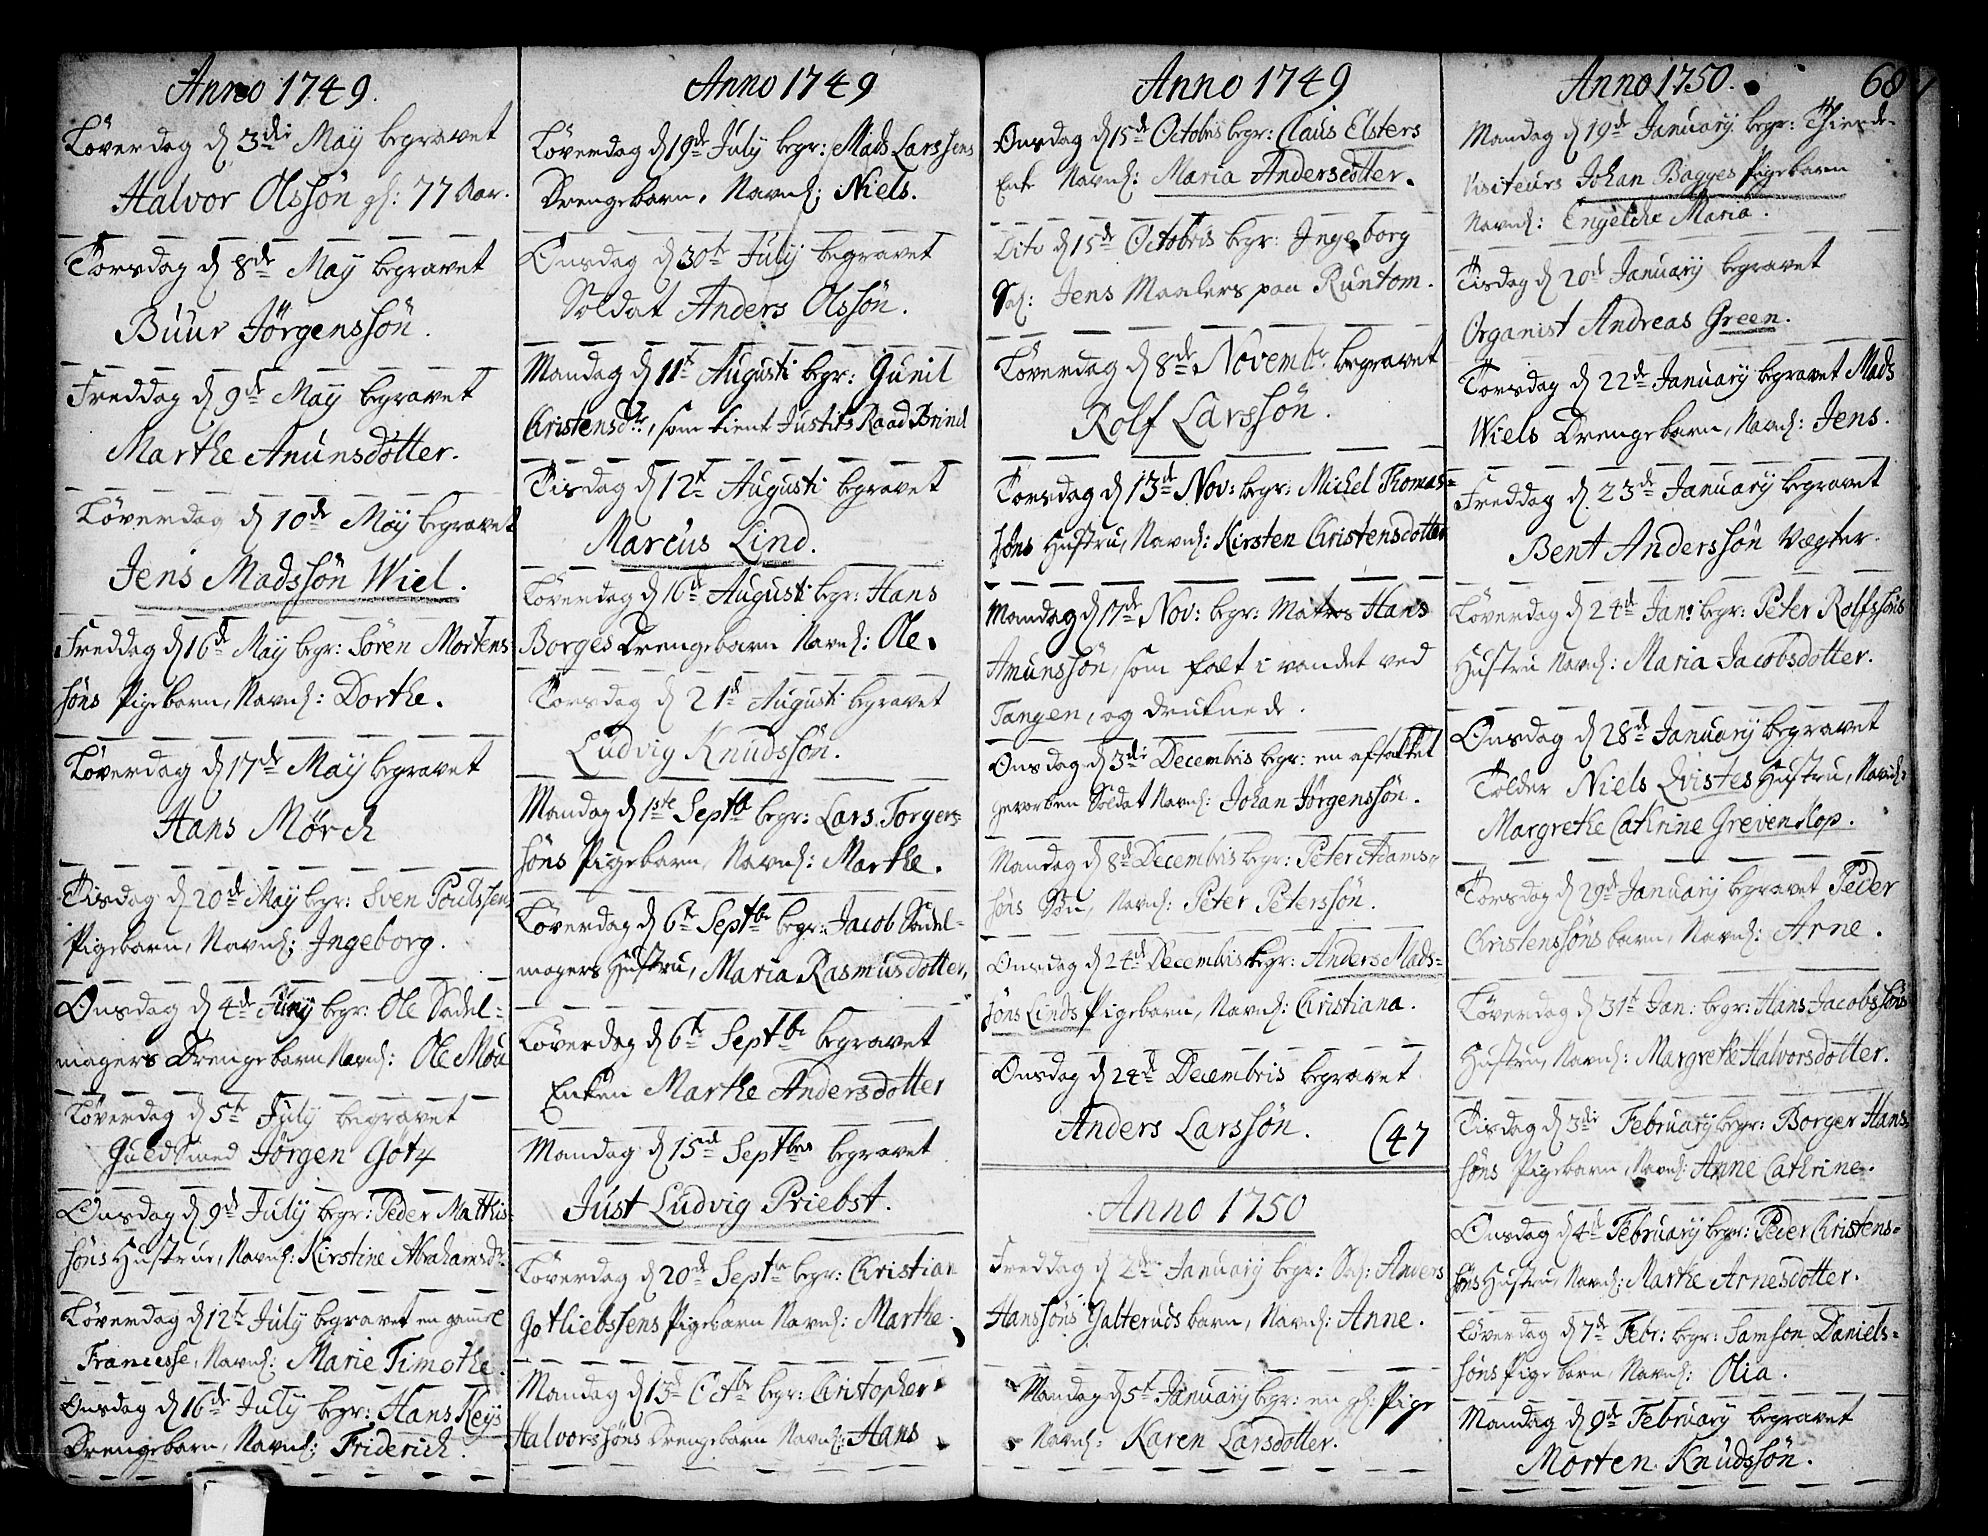 Anno 1749.
Löverdag d 3die May begravet
Halvor Olssön gl: 77 Aar.
Torsdag d 8de May begravet
Buur Jörgenssön.
Freddag d 9de May begravet
Marthe Anunsdotter.
Löverdag d 10de May begravet
Jens Madssön Wiel.
Freddag d 16d May begr: Sören Mortens-
söns Pigebarn, Navnl: Dorthe.
Löverdag d 17de May begravet
Hans Mörch
Tisdag d 20de May begr: Sven Poulssens
Pigebarn, Navnl: Ingeborg.
Onsdag d 4de Juny begr: Ole Sadel-
magers Drengebarn Navnl: Ole Mou
Löverdag d 5te July begravet
Guldsmed Jörgen Götz
Onsdag d 9de July begr: Peder Mathis-
söns Hustrue, Navnl: Kirstine Abrahamsdr
Löverdag d 12te July begravet en gamel
Francesse, Navnl: Marie Timothe.
Onsdag d 16de July begr: Hans Keys
Drengebarn, Navnl: Friderich.
Anno 1749
Löverdag d 19de July begr: Mads Larssens
Drengebarn, Navnl: Niels.
Onsdag d 30te July begravet
Soldat Anders Olssön.
Mandag d 11te Augusti begr: Gunil
Christensdr, som tient Justits Raad Brinck
Tisdag d 12te Augusti begravet
Marcus Lind.
Löverdag d 16de Augusti begr: Hans
Borges Drengebarn Navnl: Ole.
Torsdag d 21de Augusti begravet
Ludvig Knudssön.
Mandag d 1ste Septbr begr: Lars Torgers-
söns Pigebarn, Navnl: Marthe.
Löverdag d 6te Septbr begr: Jacob Sadel-
magers Hustru, Maria Rasmusdotter,
Löverdag d 6te Septbr begravet
Enken Marthe Andersdotter
Mandag d 15de Septbris begravet
Just Ludvig Priebst.
Löverdag d 20de Septbr begr: Christian
Gotliebssens Pigebarn Navnl: Marthe.
Mandag d 13de Octbr begr: Christopher
Halvorssöns Drengebarn Navnl: Hans
Anno 1749
Onsdag d 15de Octobris begr: Claus Elsters
Enke Navnl: Maria Andersdotter.
Dito d 15de Octobris begr: Ingeborg
Sal: Jens Maalers paa Runtom.
Löverdag d 8de Novembr begravet
Rolf Larssön.
Torsdag d 13de Nov: begr: Michel Thomas-
söns Hustru, Navnl: Kirsten Christensdotter
Mandag d 17de Nov: begr: Matros Hans
Amunssön, som falt i vandet ved
Tangen, og druknede.
Onsdag d 3die Decembris begr: en aftakket
gevorben Soldat Navnl: Johan Jörgenssön.
Mandag d 8de Decembris begr: Peter Adams-
söns Sön, Navnl: Peter Peterssön.
Onsdag d 24de Decembris begr: Anders Mads-
söns Linds Pigebarn, Navnl: Christiana.
Onsdag d 24de Decembris begravet
Anders Larssön. (47
Anno 1750
Freddag d 2den January begr: Sal: Anders
Hanssöns Galteruds barn, Navnl: Anne.
Mandag d 5te January begr: en gl: Pige
Navnl: Karen Larsdotter.
Anno 1750. 68
Mandag d 19de January begr: Thiende-
Visiteurs Johan Bagges Pigebarn
Navnl: Engelche Maria.
Tisdag d 20de January begravet
Organist Andreas Green.
Torsdag d 22de January begravet Mads
Wiels Drengebarn, Navnl: Jens.
Freddag d. 23de January begravet
Bent Anderssön Vægter.
Löverdag d 24de Jan: begr: Peter Rolfssöns
Hustru Navnl: Maria Jacobsdotter.
Onsdag d 28de January begravet
Tolder Niels Qvistes Hustru, Navnl:
Margrethe Cathrine Grevenkop.
Torsdag d 29de January begravet Peder
Christenssöns barn, Navnl: Arne.
Löverdag d 31te Jan: begr: Hans Jacobssöns
Hustru, Navnl: Margrethe Halvorsdotter.
Tisdag d 3die February begr: Borger Hans
söns Pigebarn, Navnl: Anne Cathrine.
Onsdag d 4de February begr: Peder Christens-
söns Hustru, Navnl: Marthe Arnesdotter.
Löverdag d 7de Febr: begr: Samson Daniels-
söns Pigebarn, Navnl: Olia.
Mandag d 9de February begravet
Morten Knudssön.